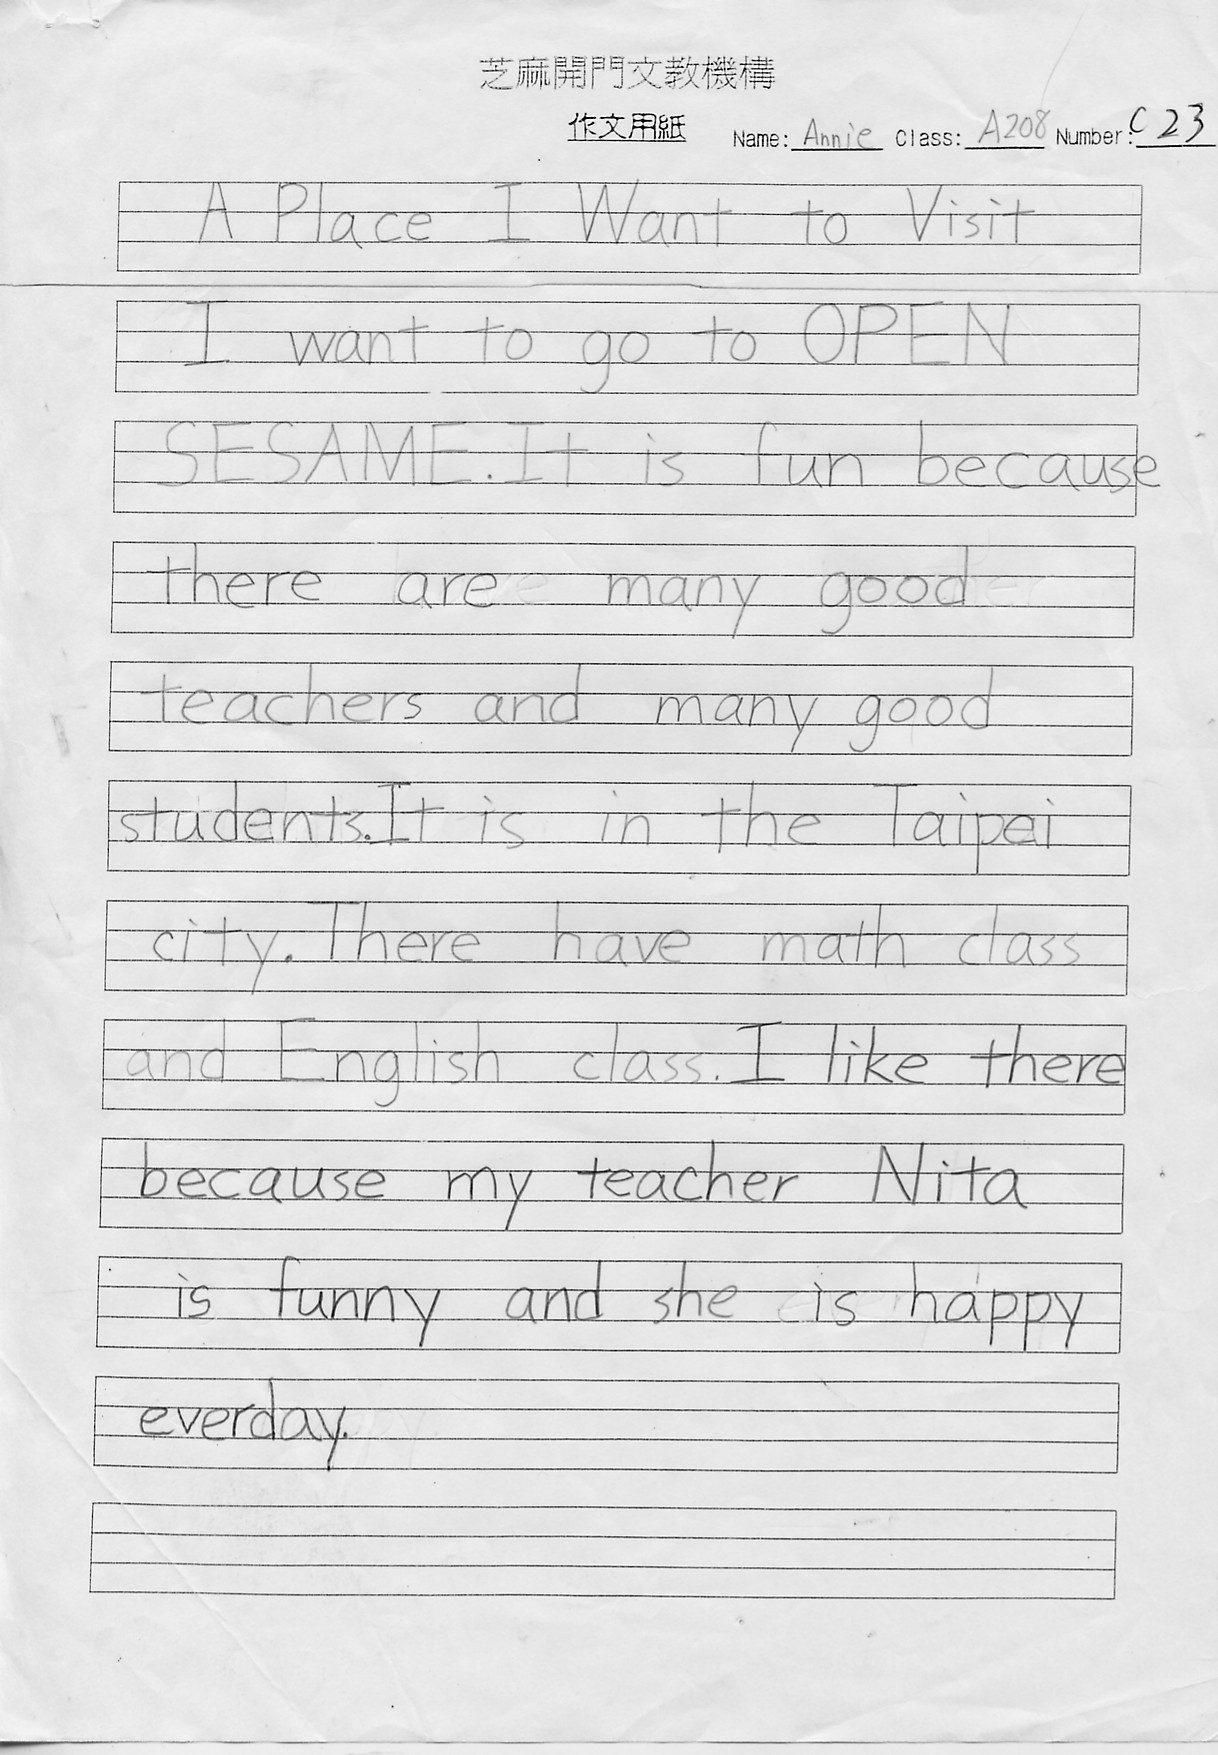 芝麻開門文教機構
作文用紙 Name: Annie Class: A208 Number: C23
A Place I Want to Visit
I want to go to OPEN
SESAME. It is fun because
there are many good
teachers and many good
students. It is in the Taipei
city. There have math class
and English class. I like there
because my teacher Nita
is funny and she is happy
everday.